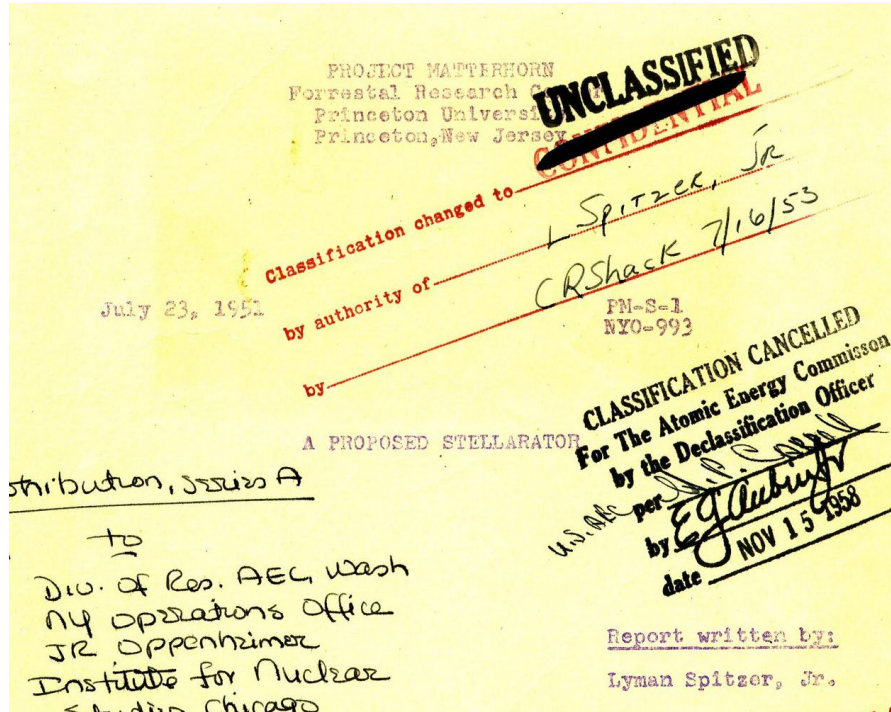 PROJECT MATTERHORN
Forrestal Research
Princeton Universi
Princeton, New Jersey
UNCLASSIFIED
CONFIDENTIAL
Classification changed to
by authority of L Spitzer, Jr
by CRShack 7/16/53
July 23, 1951
PM-S-1
NYO-993
A PROPOSED STELLARATOR
CLASSIFICATION CANCELLED
For The Atomic Energy Commisson
by the Declassification Officer
U.S. AEC
per
by
date NOV 15 1958
stribution, series A
to
Div. of Res. AEC, Wash
NY Operations Office
JR Oppenheimer
Institute for Nuclear
Studies Chicago
Report written by:
Lyman Spitzer, Jr.